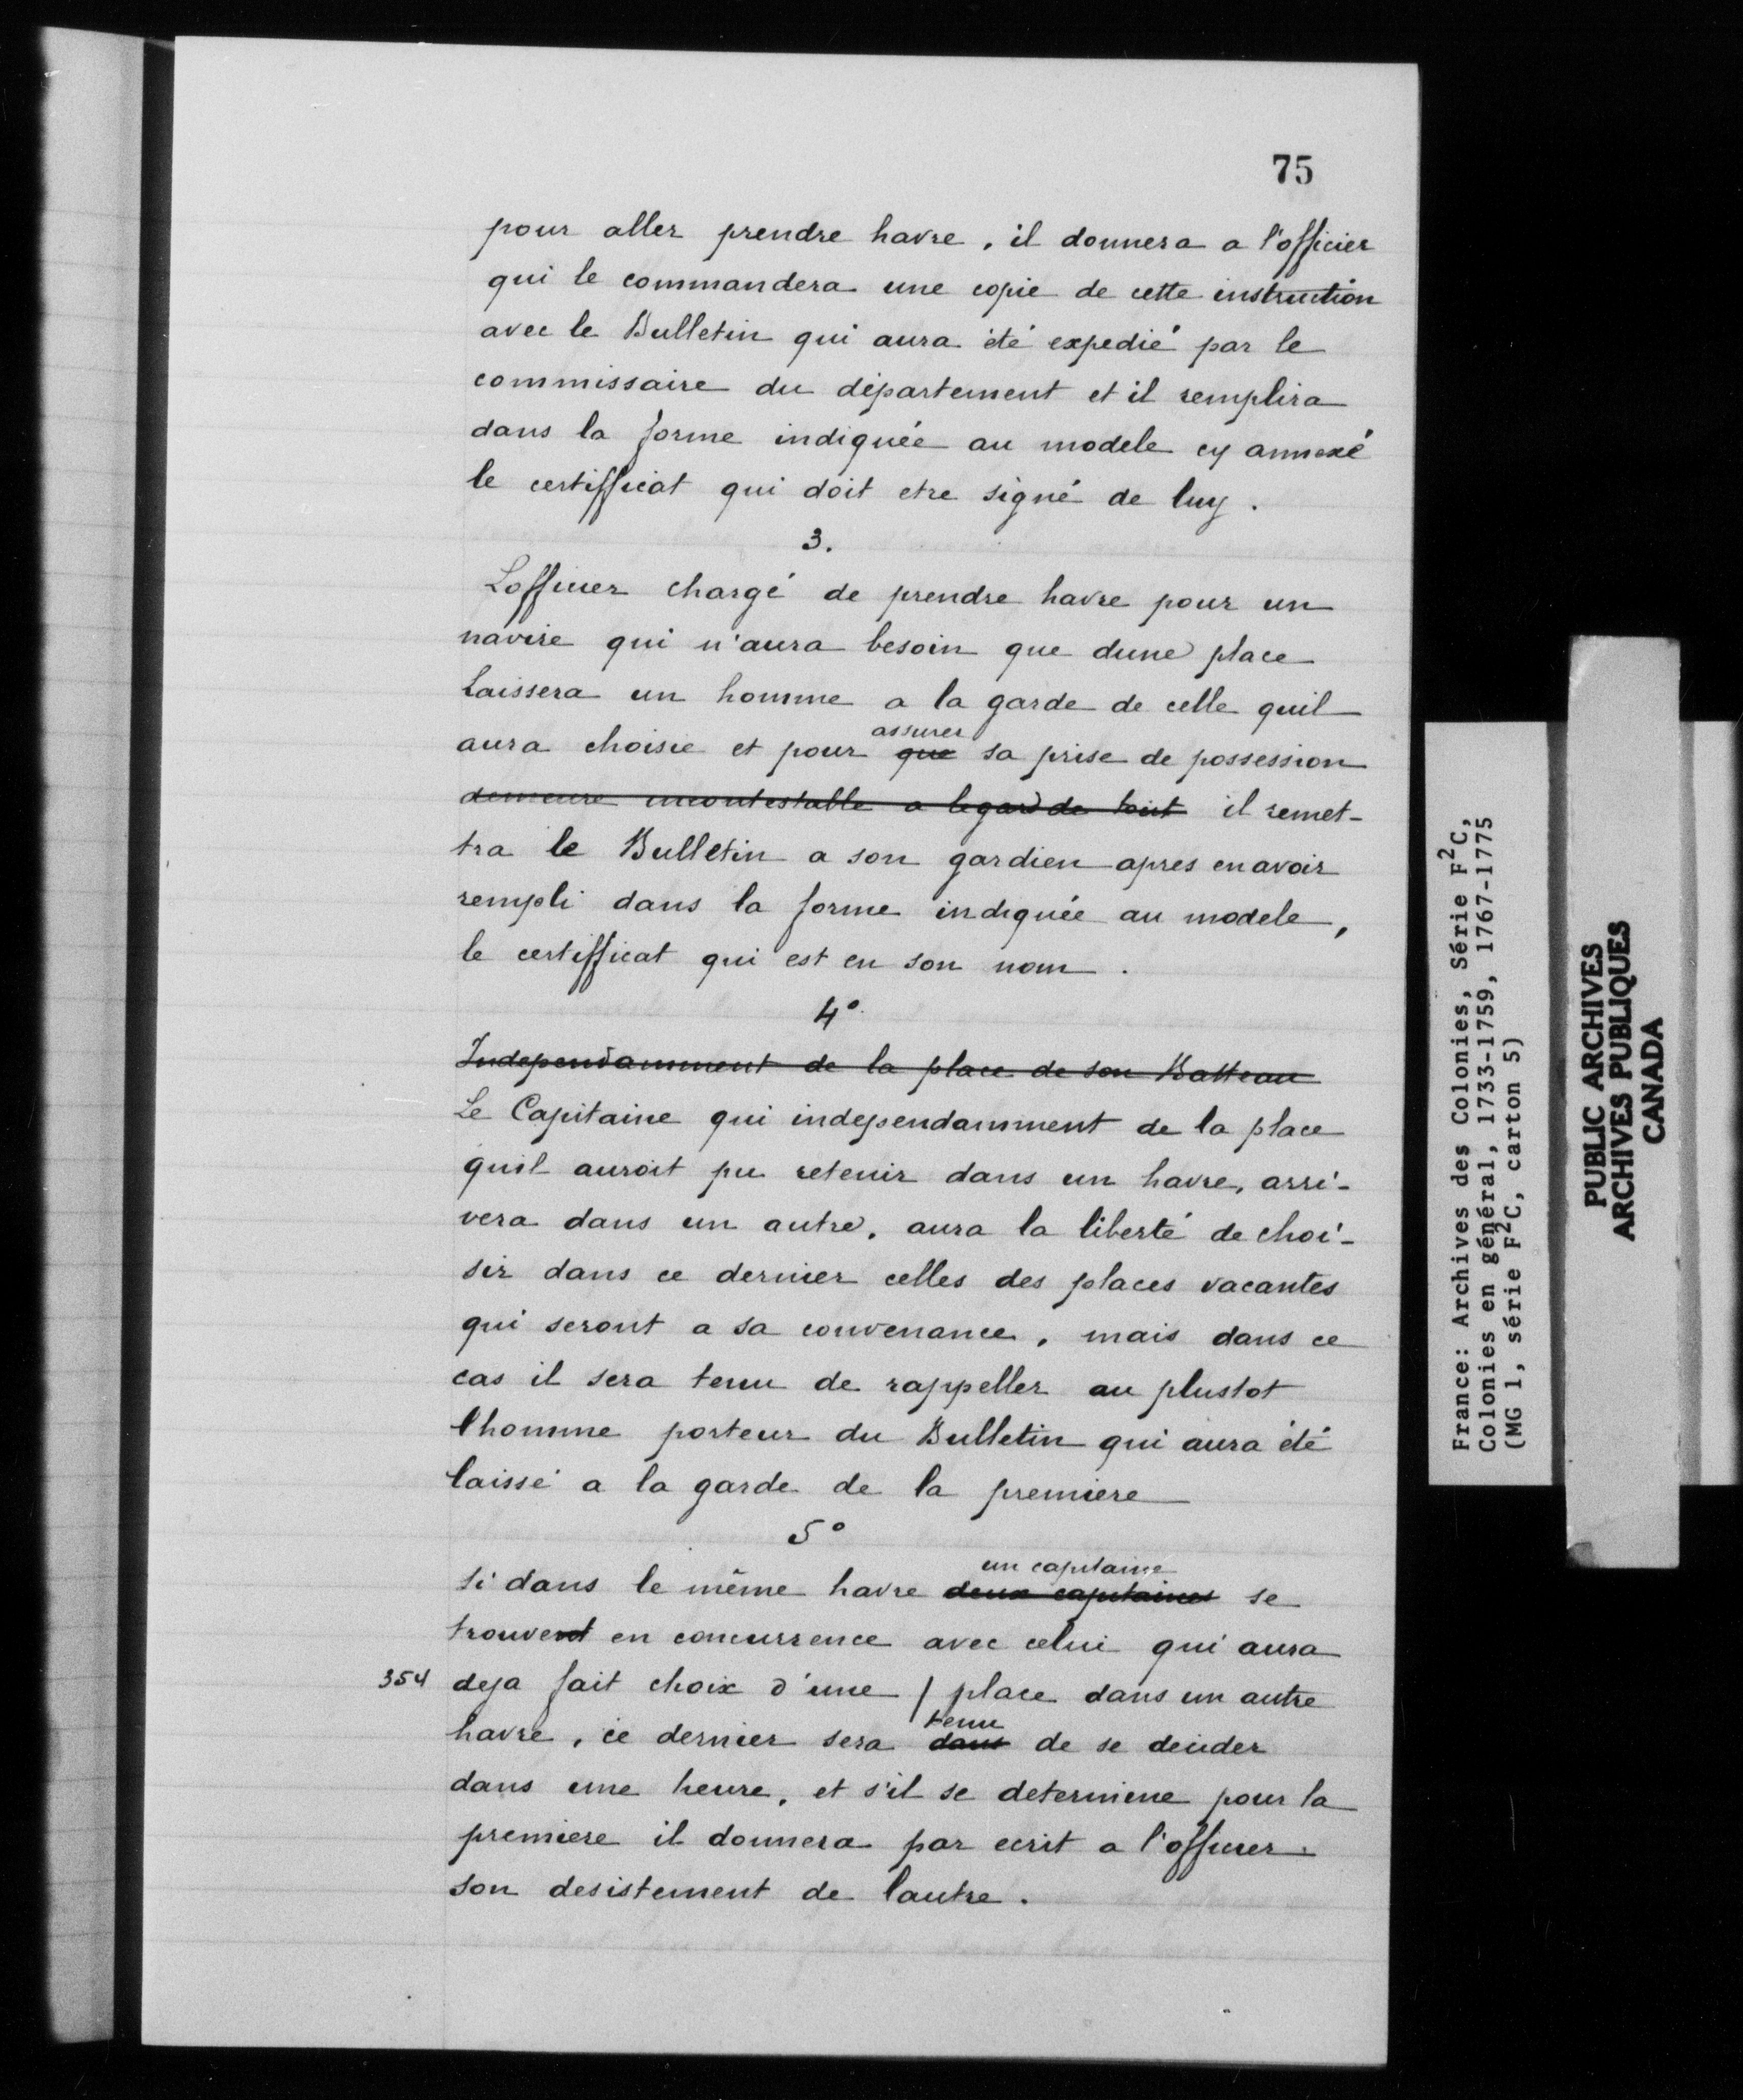 75
pour aller prendre havre, il donnera a l'officier
qui le commandera une copie de cette instruction
avec le Bulletin qui aura été expedié par le
commissaire du département et il remplira
dans la forme indiquée au modele cy annexé
le certifficat qui doit etre signé de luy.
3.
Lofficier chargé de prendre havre pour un
navire qui n'aura besoin que dune place
laissera un homme a la garde de celle quil
assurer
aura choisie et pour que sa prise de possession
demeure incontestable a legard de tout il remet-
tra le Bulletin a son gardien apres en avoir
rempli dans la forme indiquée au modele,
le certifficat qui est en son nom.
4°
Independamment de la place de son Batteau
Le Capitaine qui independamment de la place
quil auroit pu retenir dans un havre, arri-
vera dans un autre, aura la liberté de choi-
sir dans ce dernier celles des places vacantes
qui seront a sa convenance, mais dans ce
cas il sera tenu de rappeller au plustot
l'homme porteur du Bulletin qui aura été
laissé a la garde de la premiere
5°
un capitaine
si dans le même havre deux capitaines se
trouvent en concurrence avec celui qui aura
354 deja fait choix d'une / place dans un autre
tenu
havre, ce dernier sera dans de se decider
dans une heure, et s'il se determine pour la
premiere il donnera par ecrit a l'officier
son desistement de lautre.
France: Archives des Colonies, Série F²C,
Colonies en général, 1733-1759, 1767-1775
(MG 1, série F²C, carton 5)
PUBLIC ARCHIVES
ARCHIVES PUBLIQUES
CANADA